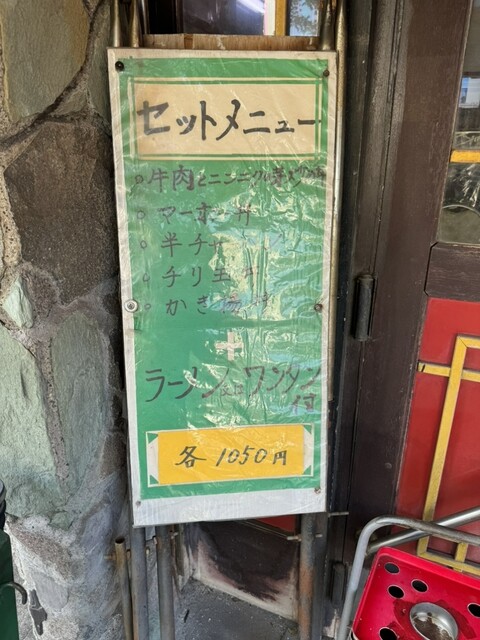 セットメニュー
○牛肉とニンニクの芽
○マーボー丼
○半チャ
○チリ玉丼
○かき揚丼
+
ラーメン又はワンタン
付
各1050円